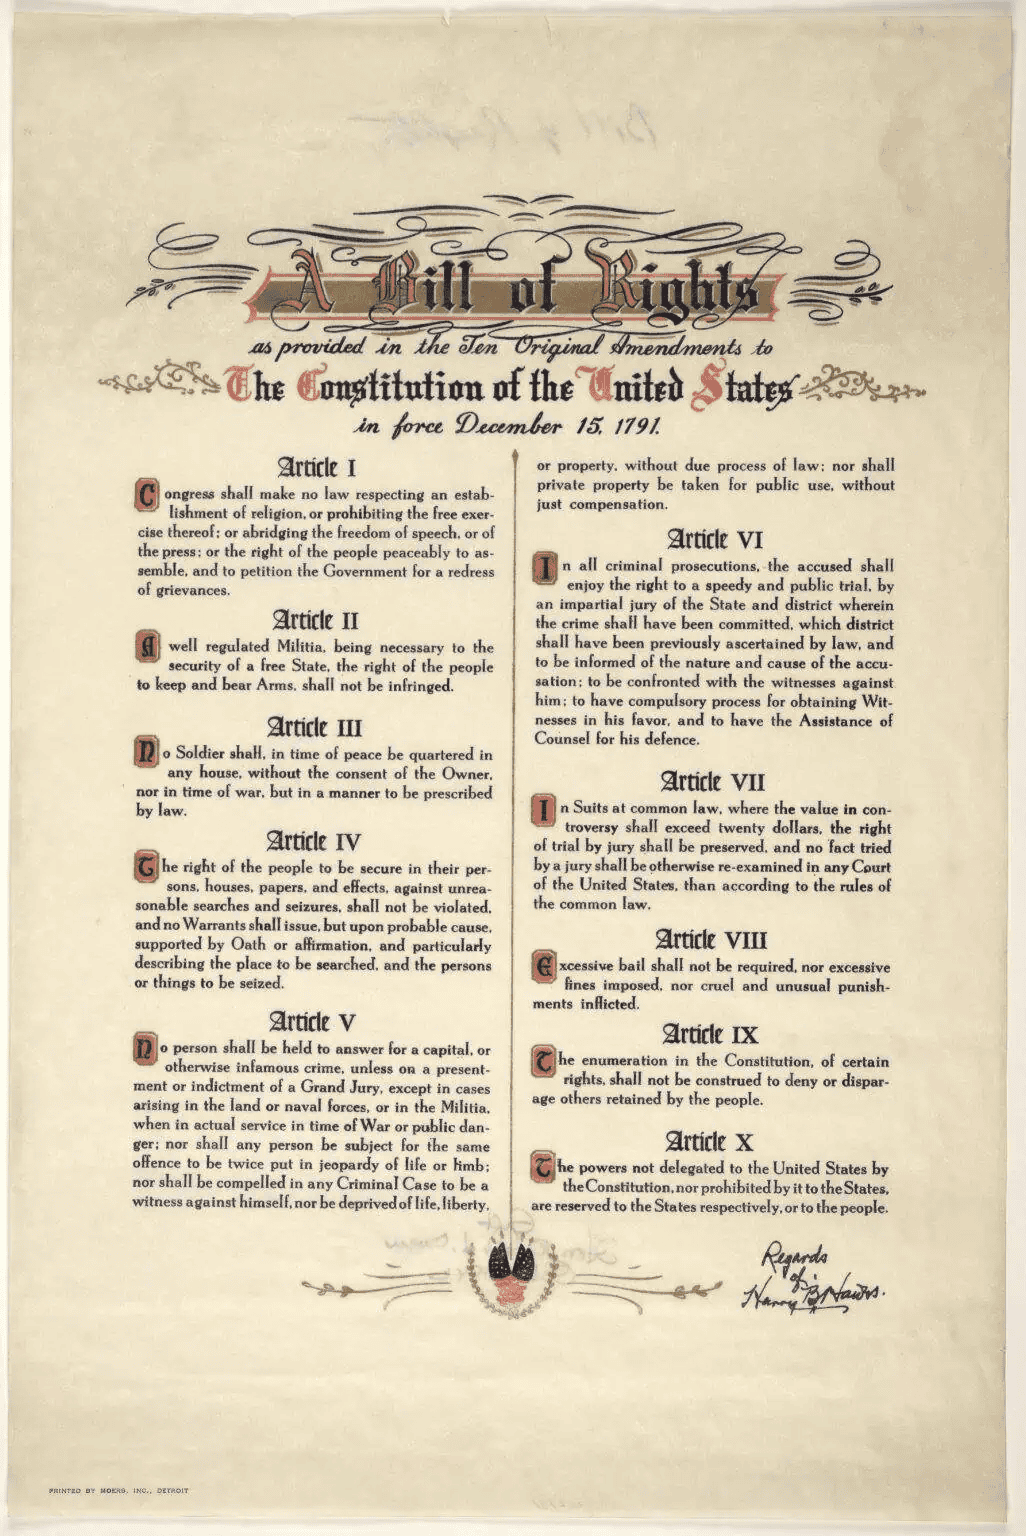 A Bill of Rights
as provided in the Ten Original Amendments to
The Constitution of the United States
in force December 15, 1791.
Article I
Congress shall make no law respecting an estab-
lishment of religion, or prohibiting the free exer-
cise thereof; or abridging the freedom of speech, or of
the press; or the right of the people peaceably to as-
semble, and to petition the Government for a redress
of grievances.
Article II
A well regulated Militia, being necessary to the
security of a free State, the right of the people
to keep and bear Arms, shall not be infringed.
Article III
No Soldier shall, in time of peace be quartered in
any house, without the consent of the Owner,
nor in time of war, but in a manner to be prescribed
by law.
Article IV
The right of the people to be secure in their per-
sons, houses, papers, and effects, against unrea-
sonable searches and seizures, shall not be violated,
and no Warrants shall issue, but upon probable cause,
supported by Oath or affirmation, and particularly
describing the place to be searched, and the persons
or things to be seized.
Article V
No person shall be held to answer for a capital, or
otherwise infamous crime, unless on a present-
ment or indictment of a Grand Jury, except in cases
arising in the land or naval forces, or in the Militia,
when in actual service in time of War or public dan-
ger; nor shall any person be subject for the same
offence to be twice put in jeopardy of life or limb;
nor shall be compelled in any Criminal Case to be a
witness against himself, nor be deprived of life, liberty,
or property, without due process of law; nor shall
private property be taken for public use, without
just compensation.
Article VI
In all criminal prosecutions, the accused shall
enjoy the right to a speedy and public trial, by
an impartial jury of the State and district wherein
the crime shall have been committed, which district
shall have been previously ascertained by law, and
to be informed of the nature and cause of the accu-
sation; to be confronted with the witnesses against
him; to have compulsory process for obtaining Wit-
nesses in his favor, and to have the Assistance of
Counsel for his defence.
Article VII
In Suits at common law, where the value in con-
troversy shall exceed twenty dollars, the right
of trial by jury shall be preserved, and no fact tried
by a jury shall be otherwise re-examined in any Court
of the United States, than according to the rules of
the common law.
Article VIII
Excessive bail shall not be required, nor excessive
fines imposed, nor cruel and unusual punish-
ments inflicted.
Article IX
The enumeration in the Constitution, of certain
rights, shall not be construed to deny or dispar-
age others retained by the people.
Article X
The powers not delegated to the United States by
the Constitution, nor prohibited by it to the States,
are reserved to the States respectively, or to the people.
Regards
of
Harry B
PRINTED BY MOERS, INC., DETROIT